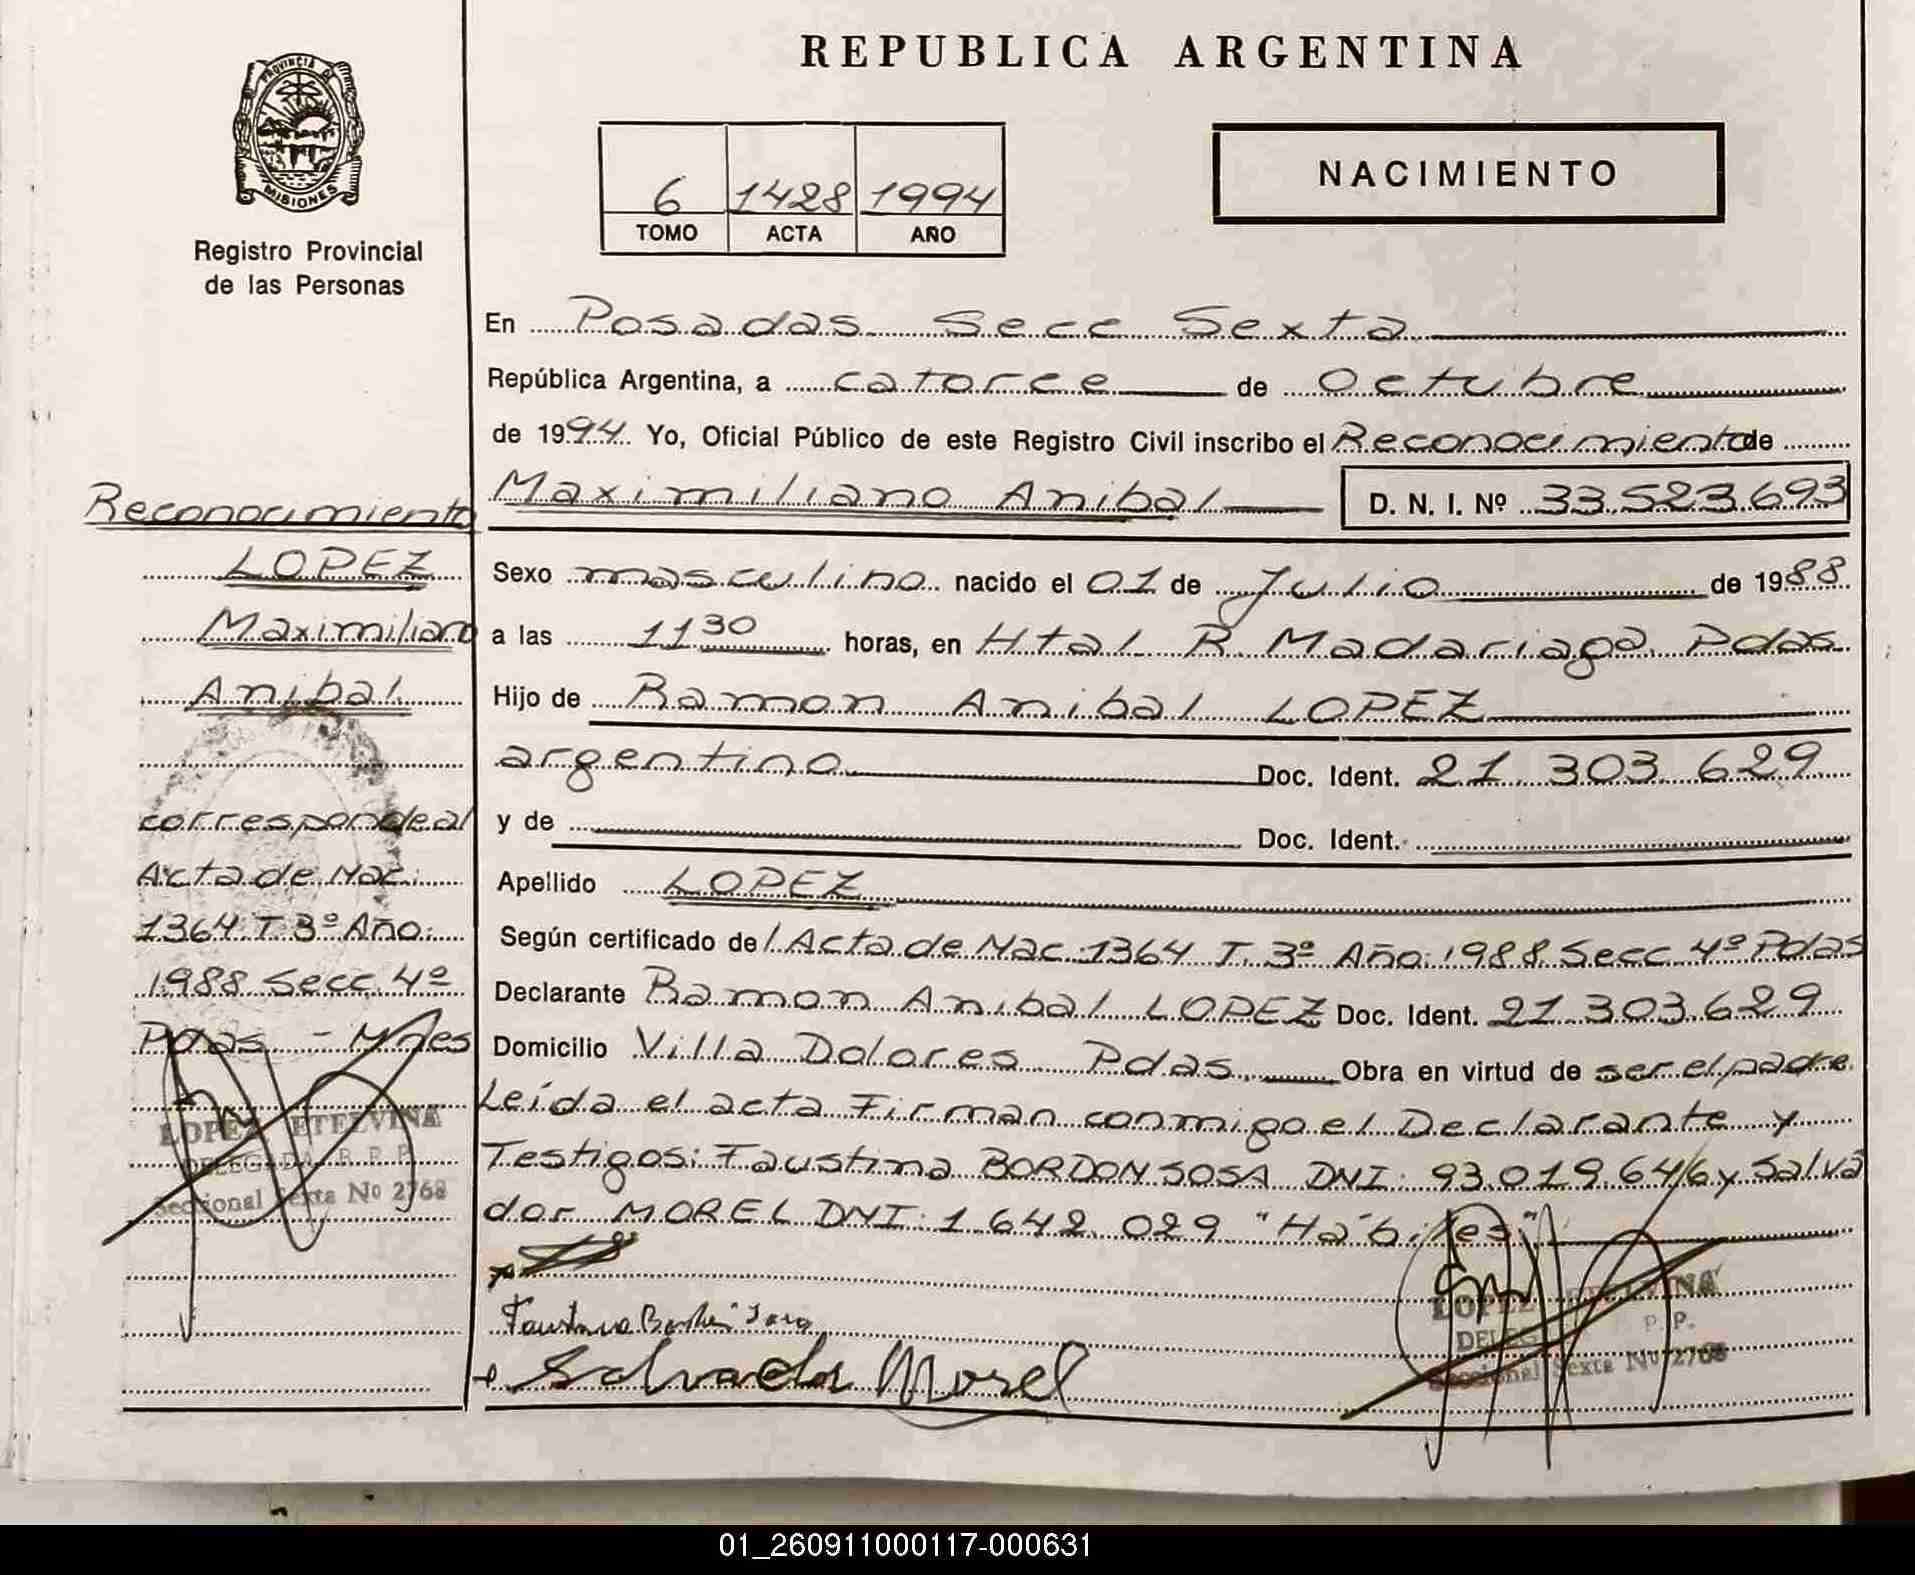 REPUBLICA ARGENTINA
PROVINCIA DE
MISIONES
Registro Provincial
de las Personas
6 1428 1994
TOMO ACTA AÑO
NACIMIENTO
En Posadas Secc Sexta
República Argentina, a catorce de Octubre
de 1994 Yo, Oficial Público de este Registro Civil inscribo el Reconocimiento de
Maximiliano Anibal D. N. I. Nº 33.523.693
Sexo masculino nacido el 01 de Julio de 1988
a las 11 30 horas, en Htal R. Madariaga Pdas
Hijo de Ramon Anibal LOPEZ
argentino Doc. Ident. 21.303.629
y de Doc. Ident.
Apellido LOPEZ
Según certificado de/ Acta de Nac. 1364 T. 3º Año: 1988 Secc. 4º Pdas
Declarante Ramon Anibal LOPEZ Doc. Ident. 21.303.629
Domicilio Villa Dolores Pdas. Obra en virtud de ser el padre
Leída el acta Firman conmigo el Declarante y
Testigos: Faustina BORDON SOSA DNI: 93.019.646 y Salva
dor MOREL DNI: 1.642.029 "Hábiles"
Salvador Morel
LOPEZ ETELVINA
P. P.
Seccional Sexta Nº 2768
Reconocimiento
LOPEZ
Maximiliano
Anibal
corresponde al
Acta de Nac.
1364 T. 3º Año:
1988 Secc. 4º
Pdas - Mnes
LOPEZ ETELVINA
DELEGADA R. P. P.
Seccional Sexta Nº 2768
01_260911000117-000631